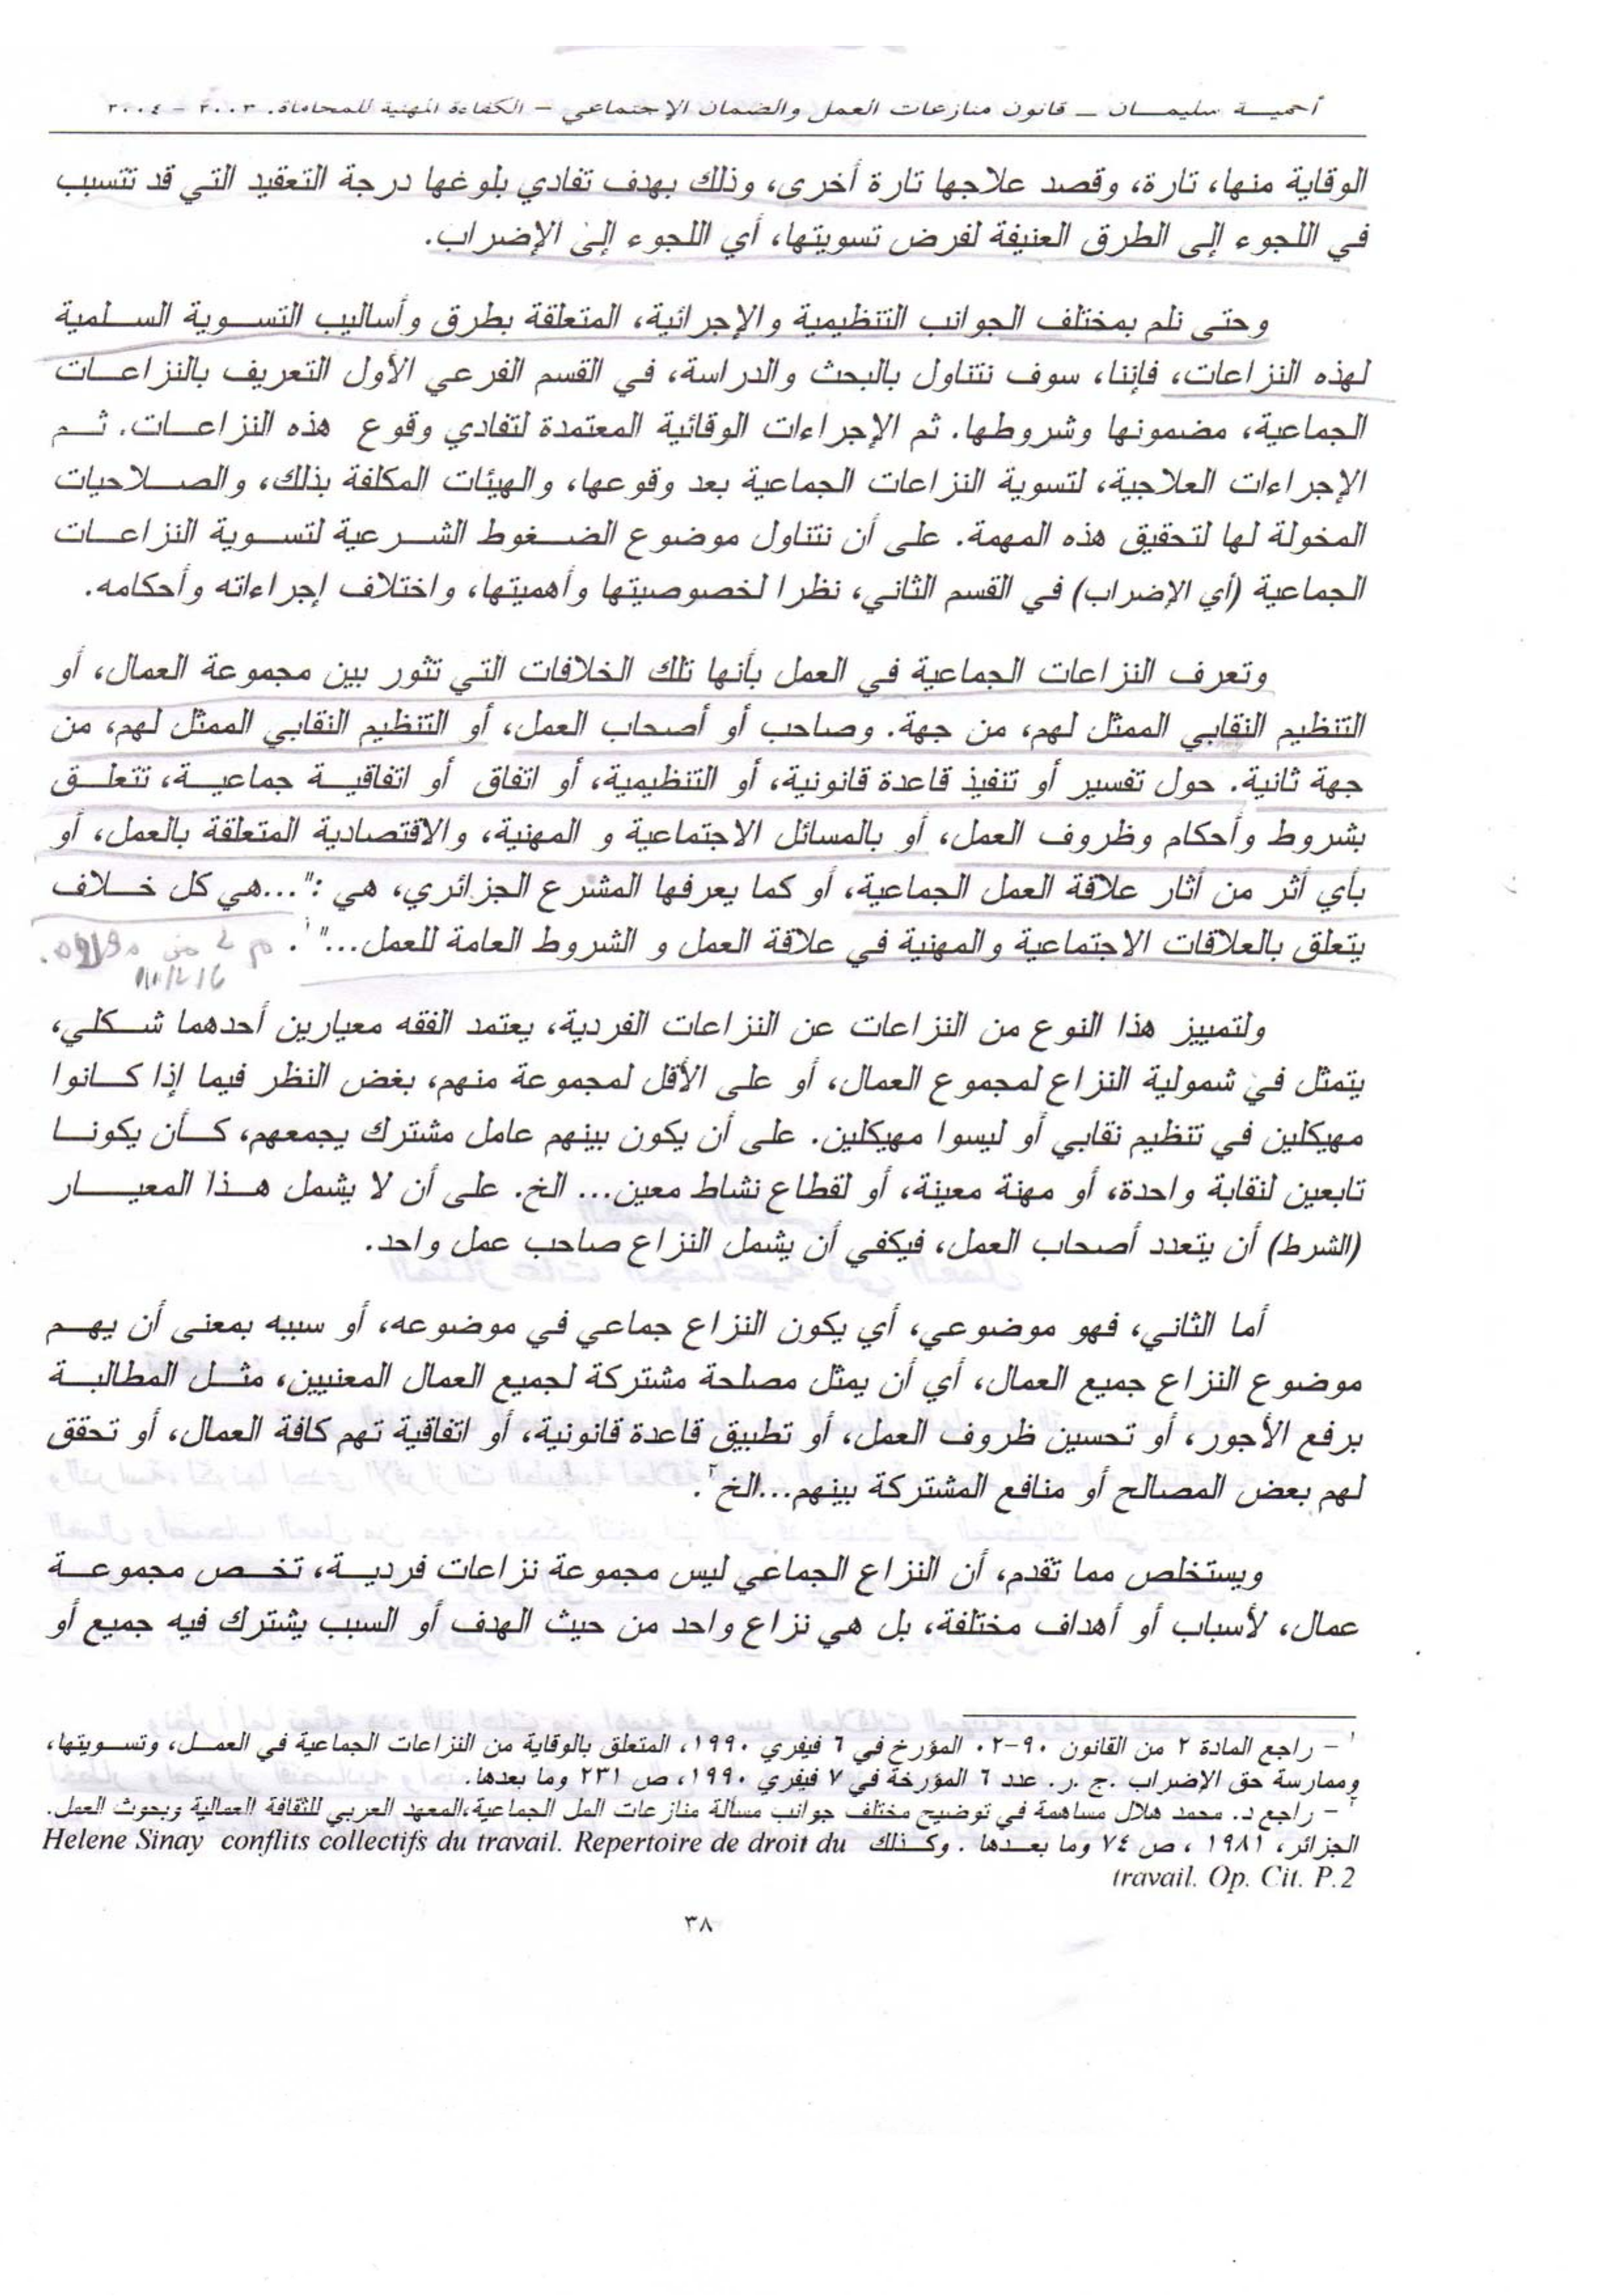 أحمية سليمان – قانون منازعات العمل والضمان الإجتماعي – الكفاءة المهنية للمحاماة. ٢٠٠٣ – ٢٠٠٤
الوقاية منها، تارة، وقصد علاجها تارة أخرى، وذلك بهدف تفادي بلوغها درجة التعقيد التي قد تتسبب
في اللجوء إلى الطرق العنيفة لفرض تسويتها، أي اللجوء إلى الإضراب.
وحتى نلم بمختلف الجوانب التنظيمية والإجرائية، المتعلقة بطرق وأساليب التسوية السلمية
لهذه النزاعات، فإننا، سوف نتناول بالبحث والدراسة، في القسم الفرعي الأول التعريف بالنزاعات
الجماعية، مضمونها وشروطها. ثم الإجراءات الوقائية المعتمدة لتفادي وقوع هذه النزاعات. ثم
الإجراءات العلاجية، لتسوية النزاعات الجماعية بعد وقوعها، والهيئات المكلفة بذلك، والصلاحيات
المخولة لها لتحقيق هذه المهمة. على أن نتناول موضوع الضغوط الشرعية لتسوية النزاعات
الجماعية (أي الإضراب) في القسم الثاني، نظرا لخصوصيتها وأهميتها، واختلاف إجراءاته وأحكامه.
وتعرف النزاعات الجماعية في العمل بأنها تلك الخلافات التي تثور بين مجموعة العمال، أو
التنظيم النقابي الممثل لهم، من جهة. وصاحب أو أصحاب العمل، أو التنظيم النقابي الممثل لهم، من
جهة ثانية. حول تفسير أو تنفيذ قاعدة قانونية، أو التنظيمية، أو اتفاق أو اتفاقية جماعية، تتعلق
بشروط وأحكام وظروف العمل، أو بالمسائل الاجتماعية و المهنية، والاقتصادية المتعلقة بالعمل، أو
بأي أثر من أثار علاقة العمل الجماعية، أو كما يعرفها المشرع الجزائري، هي :"...هي كل خلاف
يتعلق بالعلاقات الاجتماعية والمهنية في علاقة العمل و الشروط العامة للعمل..."١.
ولتمييز هذا النوع من النزاعات عن النزاعات الفردية، يعتمد الفقه معيارين أحدهما شكلي،
يتمثل في شمولية النزاع لمجموع العمال، أو على الأقل لمجموعة منهم، بغض النظر فيما إذا كانوا
مهيكلين في تنظيم نقابي أو ليسوا مهيكلين. على أن يكون بينهم عامل مشترك يجمعهم، كأن يكونا
تابعين لنقابة واحدة، أو مهنة معينة، أو لقطاع نشاط معين... الخ. على أن لا يشمل هذا المعيار
(الشرط) أن يتعدد أصحاب العمل، فيكفي أن يشمل النزاع صاحب عمل واحد.
أما الثاني، فهو موضوعي، أي يكون النزاع جماعي في موضوعه، أو سببه بمعنى أن يهم
موضوع النزاع جميع العمال، أي أن يمثل مصلحة مشتركة لجميع العمال المعنيين، مثل المطالبة
برفع الأجور، أو تحسين ظروف العمل، أو تطبيق قاعدة قانونية، أو اتفاقية تهم كافة العمال، أو تحقق
لهم بعض المصالح أو منافع المشتركة بينهم...الخ٢.
ويستخلص مما تقدم، أن النزاع الجماعي ليس مجموعة نزاعات فردية، تخص مجموعة
عمال، لأسباب أو أهداف مختلفة، بل هي نزاع واحد من حيث الهدف أو السبب يشترك فيه جميع أو
١ – راجع المادة ٢ من القانون ٩٠-٠٢ المؤرخ في ٦ فيفري ١٩٩٠، المتعلق بالوقاية من النزاعات الجماعية في العمل، وتسويتها،
وممارسة حق الإضراب .ج .ر. عدد ٦ المؤرخة في ٧ فيفري ١٩٩٠، ص ٢٣١ وما بعدها.
٢ – راجع د. محمد هلال مساهمة في توضيح مختلف جوانب مسألة منازعات المل الجماعية،المعهد العربي للثقافة العمالية وبحوث العمل.
الجزائر، ١٩٨١ ، ص ٧٤ وما بعدها . وكذلك Helene Sinay conflits collectifs du travail. Repertoire de droit du
travail. Op. Cit. P.2
٣٨